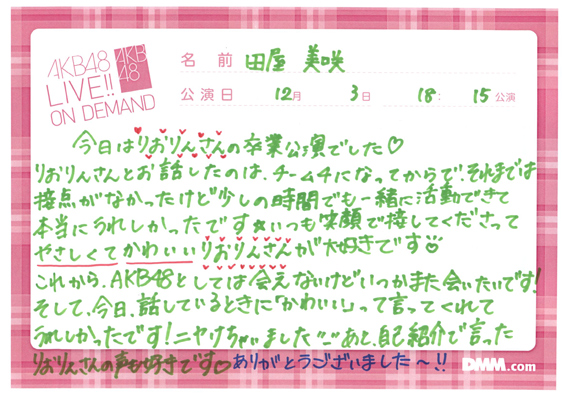 AKB48
LIVE!!
ON DEMAND
AKB
48
名 前 田屋 美咲
公演日 12月 3日 18:15公演
今日はりおりんさんの卒業公演でした♡
りおりんさんとお話したのは、チーム4になってからで、それまでは
接点がなかったけど少しの時間でも一緒に活動できて
本当にうれしかったです☆いつも笑顔で接してくださって
やさしくてかわいいりおりんさんが大好きです
これから、AKB48としては会えないけどいつかまた会いたいです!
そして、今日、話しているときに「かわいい」って言ってくれて
うれしかったです!ニヤけちゃいました あと、自己紹介で言った
りおりんさんの声も好きです♡ありがとうございました〜!!
DMM.com